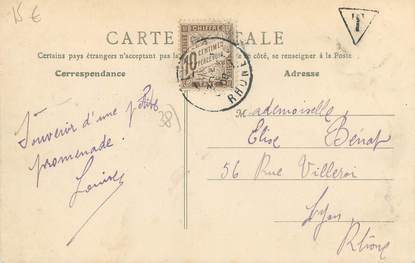 15 €
T
CARTE POSTALE
Certains pays étrangers n'acceptant pas la de côté, se renseigner à la Poste
Correspondance
Adresse
CHIFFRE
10 CENTIMES
À PERCEVOIR
RHONE
Souvenir d'une
promenade.
Louise
38)
Mademoiselle
Elise Bénat
56 Rue Villeroi
Lyon
Rhône